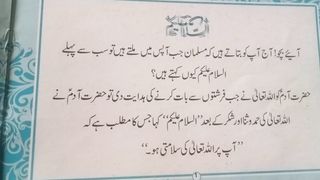 السلام علیکم
آیئے بچو! آج آپ کو بتاتے ہیں کہ مسلمان جب آپس میں ملتے ہیں تو سب سے پہلے
السلام علیکم کیوں کہتے ہیں؟
حضرت آدمؑ کو اللہ تعالیٰ نے جب فرشتوں سے بات کرنے کی ہدایت دی تو حضرت آدمؑ نے
اللہ تعالیٰ کی حمد و ثنا اور شکر کے بعد ”السلام علیکم“ کہا جس کا مطلب ہے کہ
”آپ پر اللہ تعالیٰ کی سلامتی ہو۔“